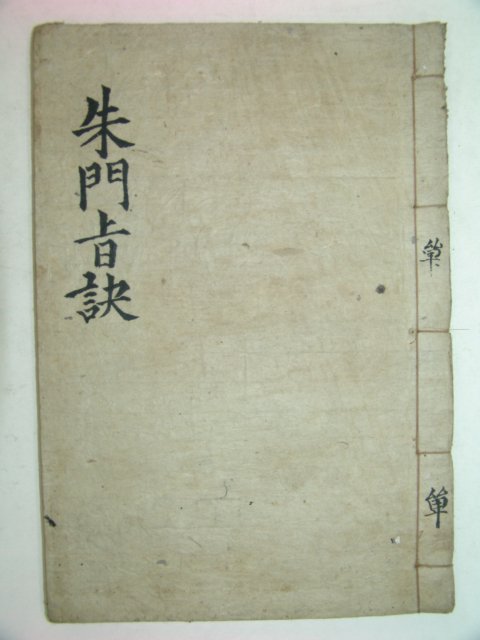 朱門旨訣
單
單